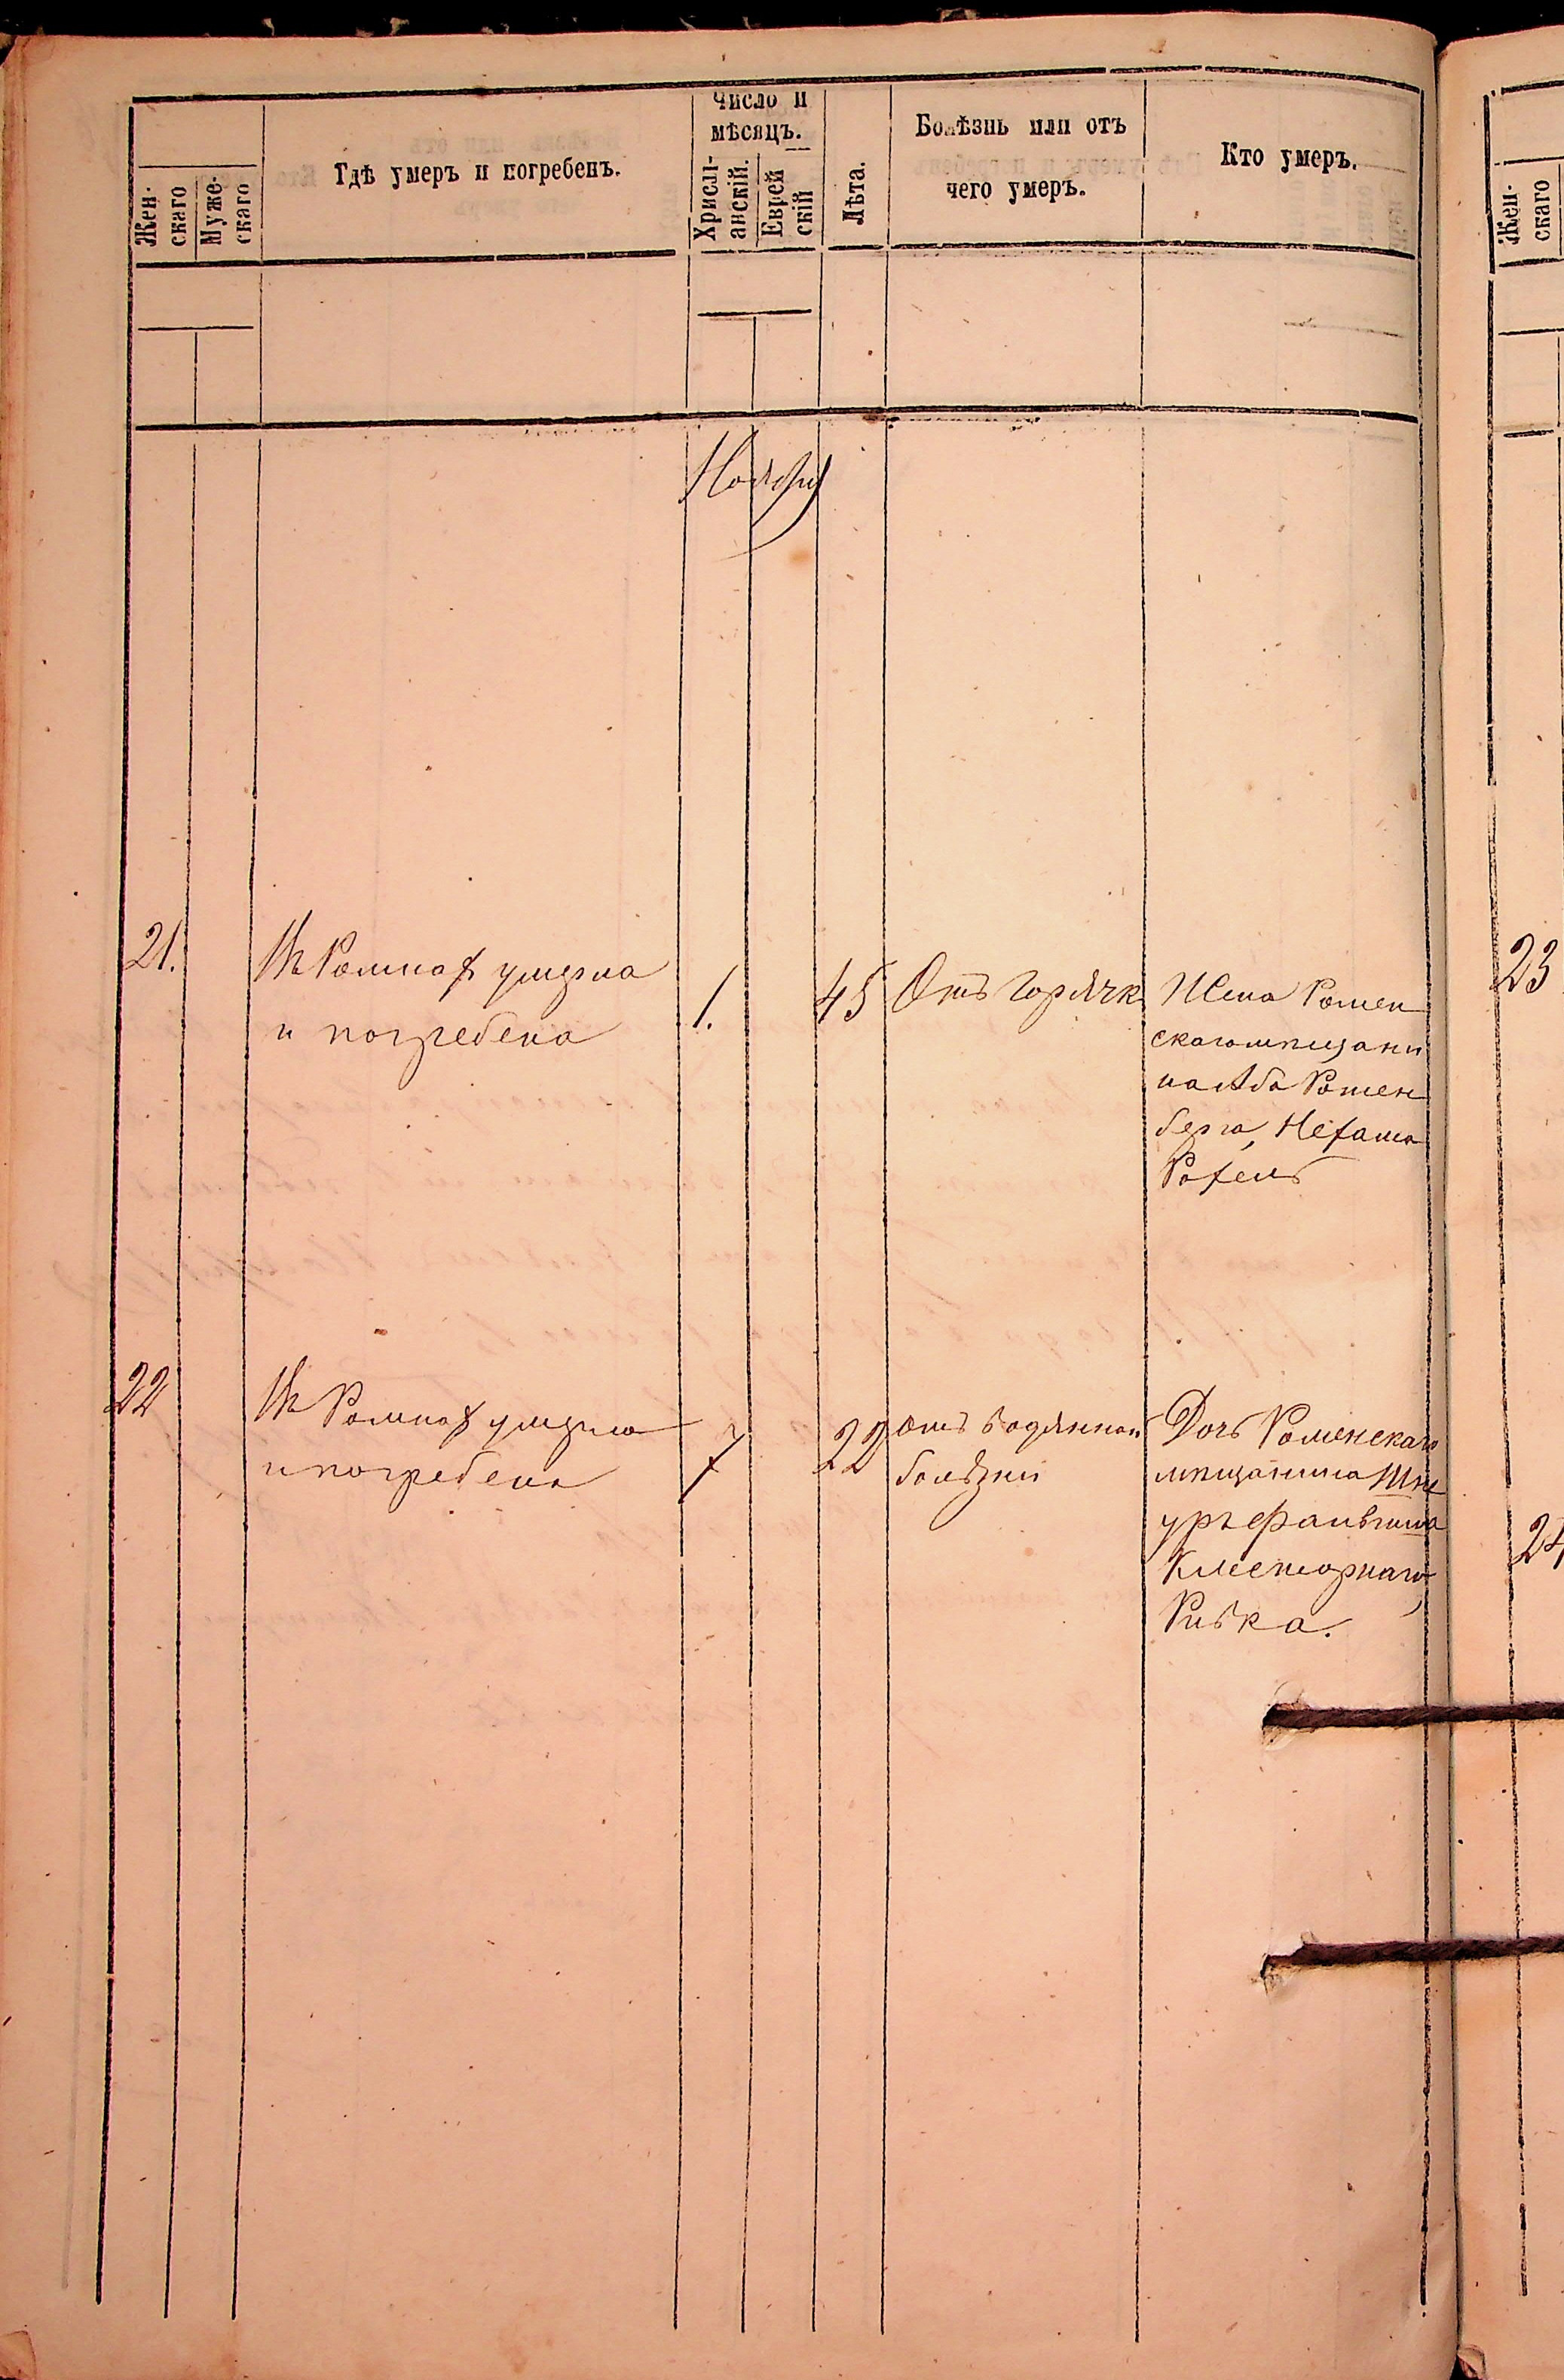 Жен-
скаго
Муже-
скаго
Гдѣ умеръ и погребенъ.
Число и
мѣсяцъ.
Христі-
анскій.
Еврей
скій
Лѣта.
Болѣзнь или отъ
чего умеръ.
Кто умеръ.
Ноября
21.
Въ Ромнах умерла
и погребена
1.
45
Отъ Горячк
Жена Ромен
скаго мещани
на Аба Ротен
берга, Нехама
Рохель
22
Въ Ромнах умерла
и погребена
7
22
отъ водянной
болѣзни
Дочь Роменскаго
мещанина Шне
уръ Фаивиша
Клеенорнаго,
Ривка.
Жен-
скаго
23
24